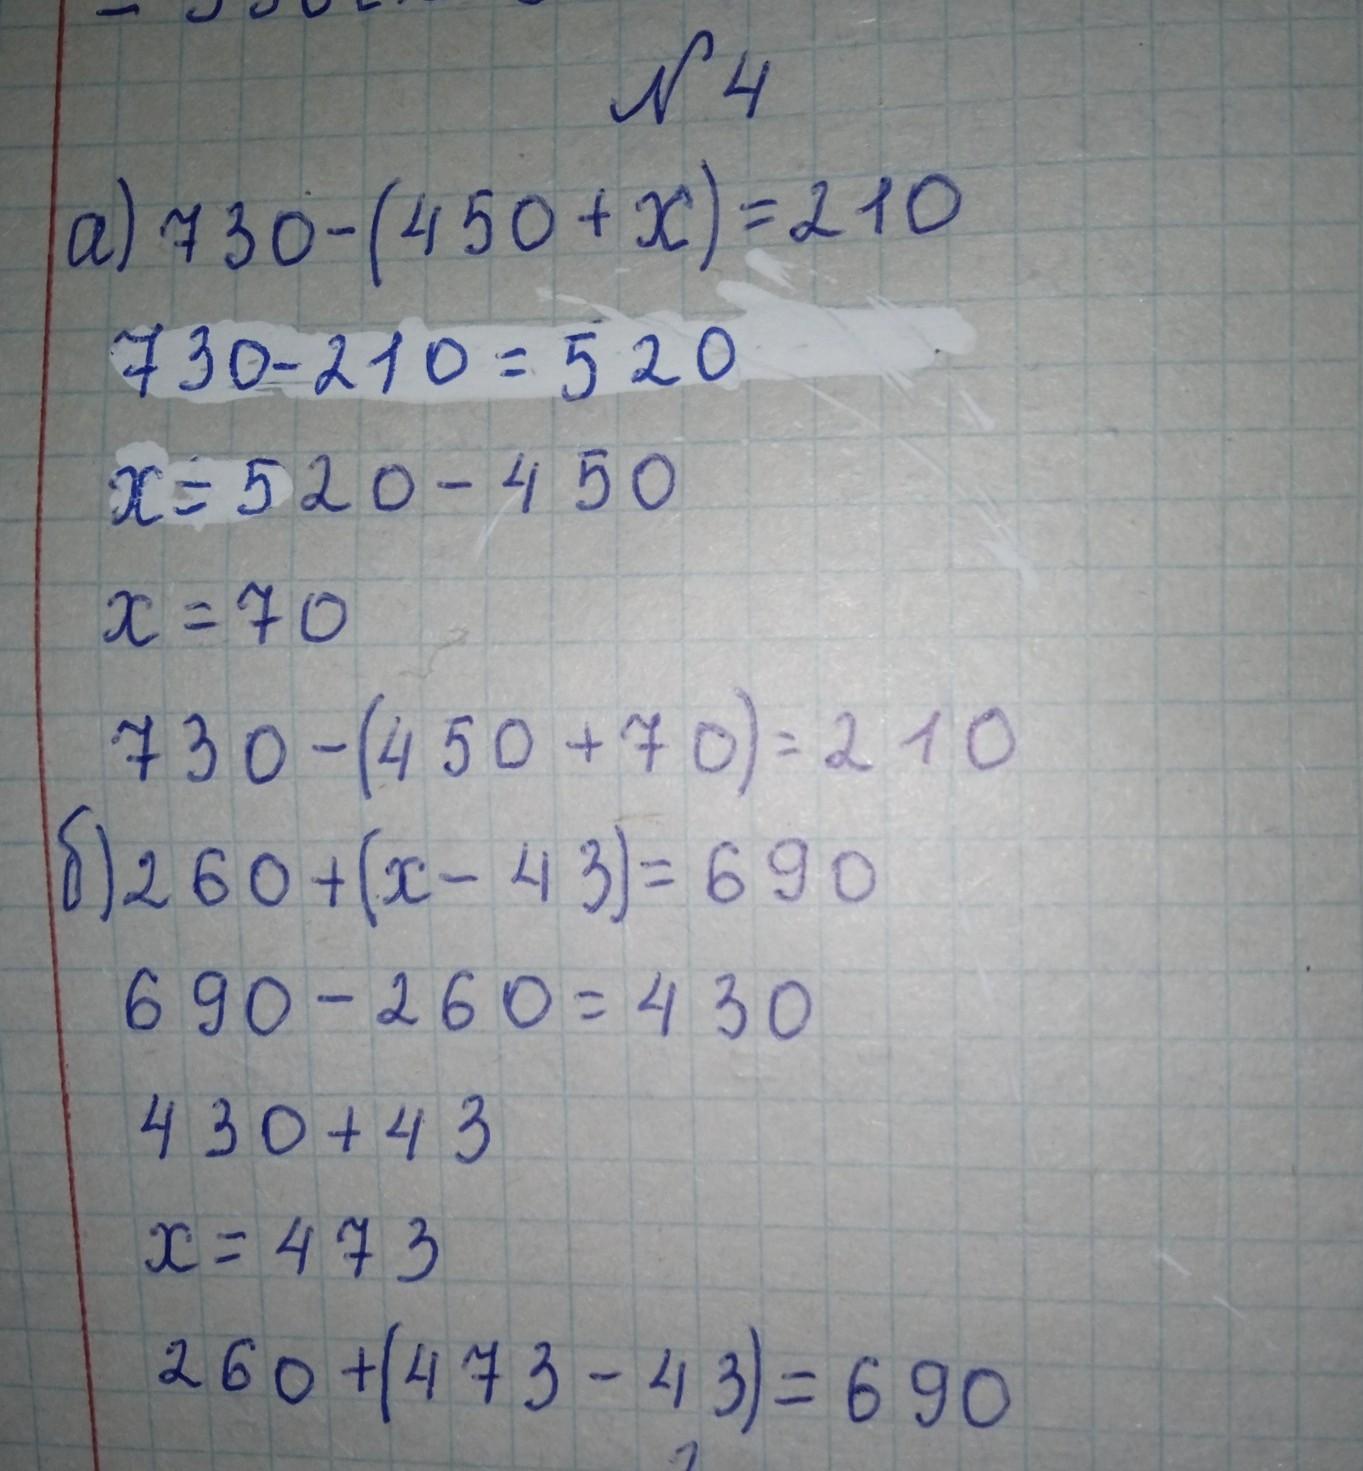 № 4
а) 730-(450+х)=210
730-210=520
х=520-450
х=70
730-(450+70)=210
б) 260+(х-43)=690
690-260=430
430+43
х=473
260+(473-43)=690